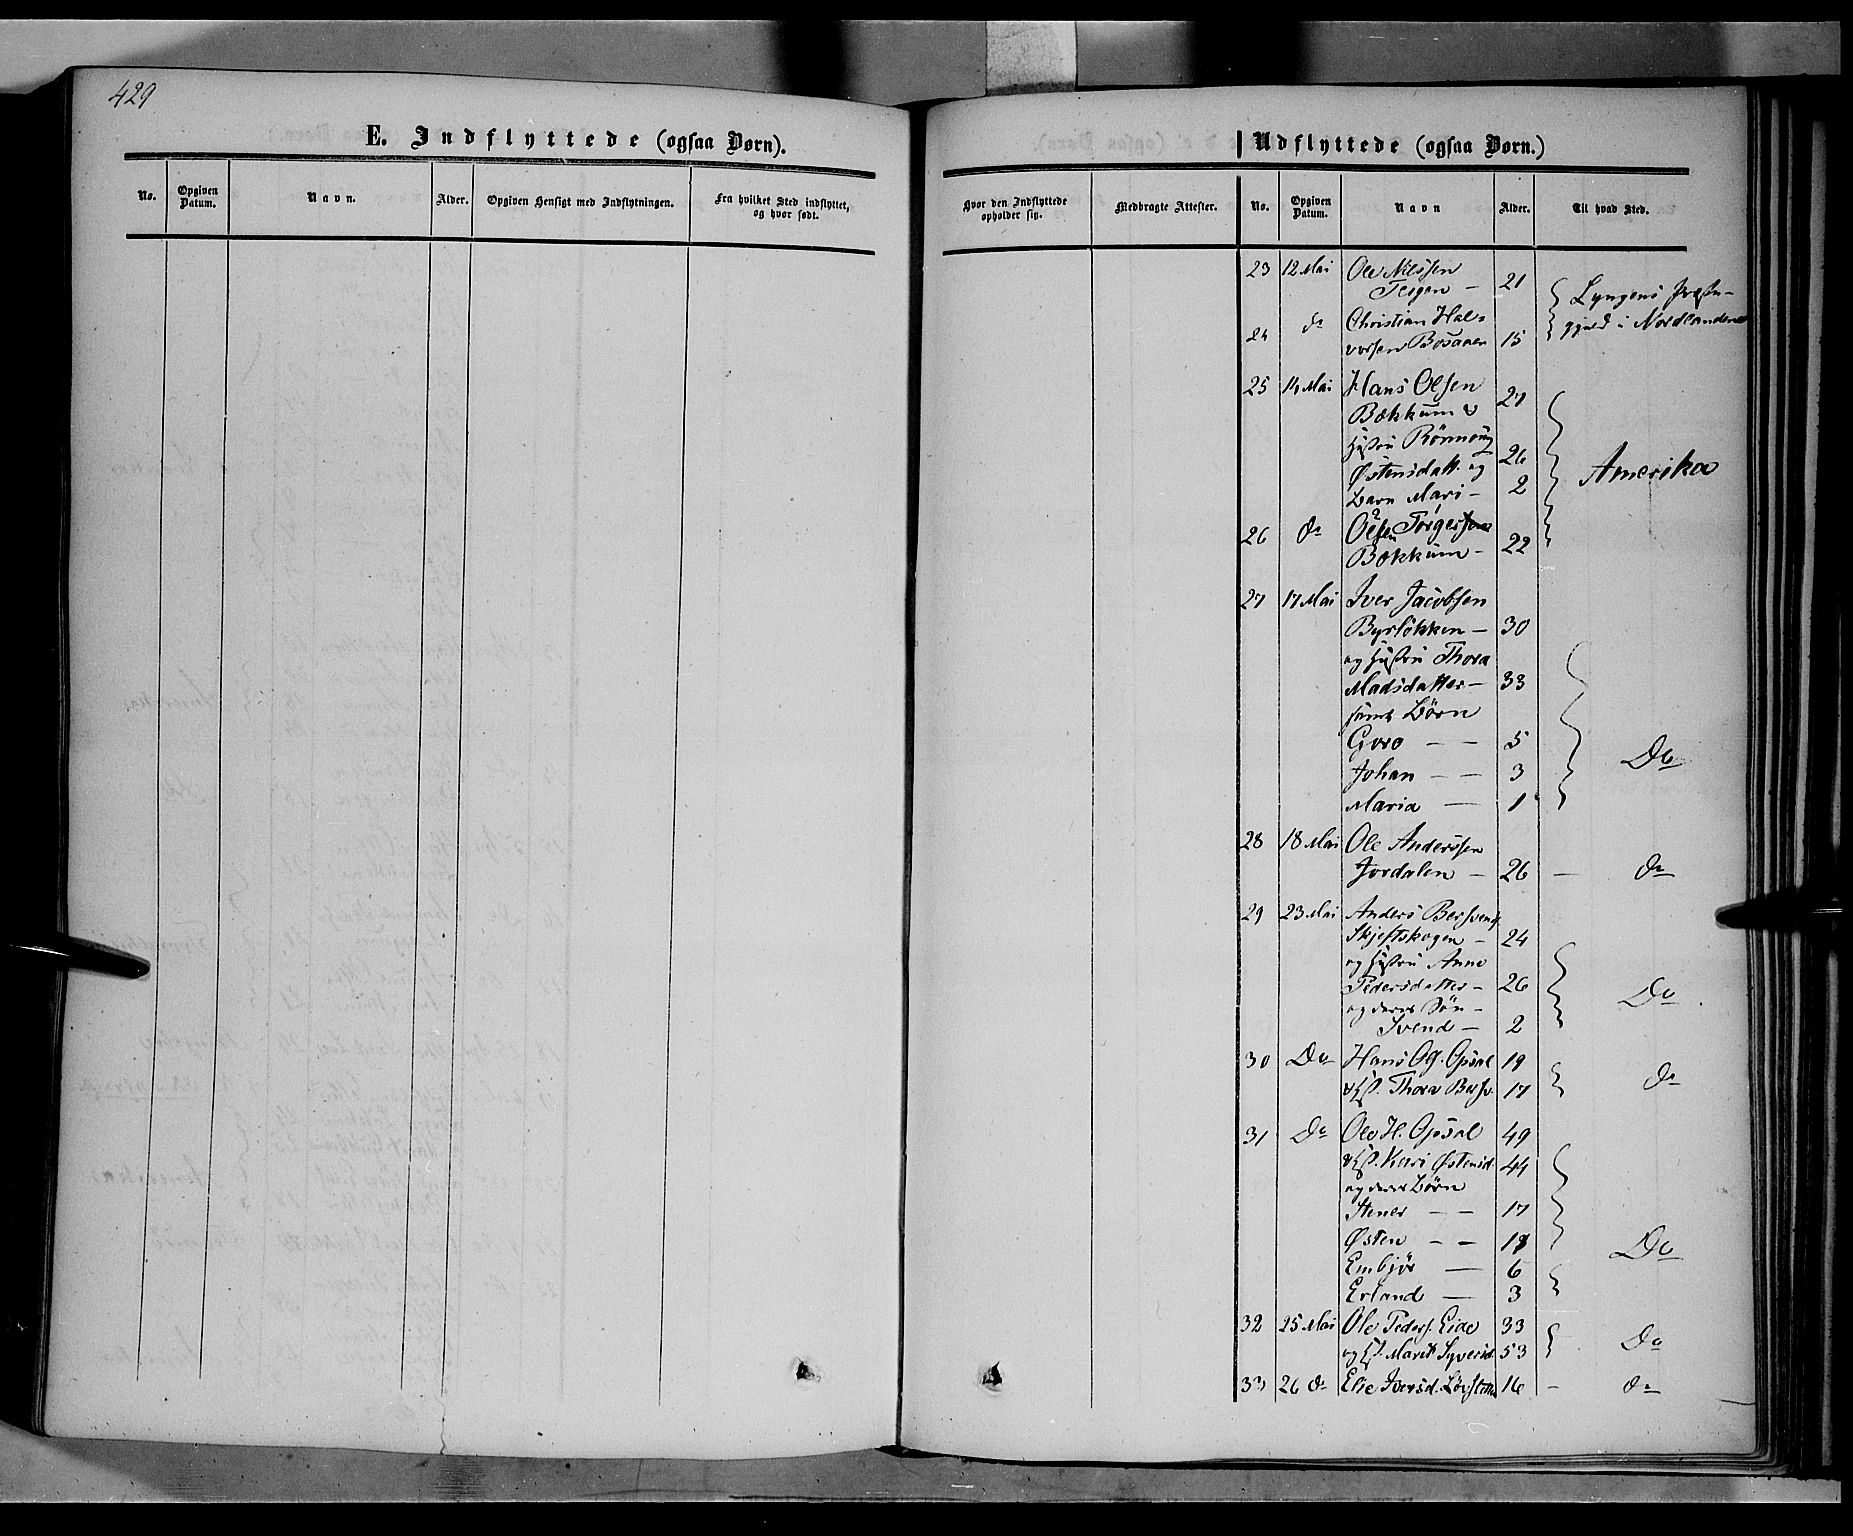 429
E. Indflyttede (ogsaa Børn).
No. Opgiven Datum. Navn. Alder. Opgiven Hensigt med Indflytningen. Fra hvilket Sted indflyttet, og hvor født.
Udflyttede (ogsaa Børn.)
Hvor den Indflyttede opholder sig. Medbragte Attester. No. Opgiven Datum. Navn Alder. Til hvad Sted.
23 12 Mai Ole Nilssen
Tesgen — 21 Lyngens Præste-
24 do Christian Hal- gjeld i Nordlandene
vorsen Bøsaaen 15
25 14 Mai Hans Olsen 27
Bækkum &
Hustru Rönnoug
Østensdatt. og 26 Amerika
Barn Mari — 2
26 do Olsen
Bækkum — 22
27 17 Mai Iver Jacobsen
Byrløkken — 30
og Hustru Thora
Madsdatter — 33
samt Børn
Goro — — 5
Johan — — 3 Do
Maria — 1
28 18 Mai Ole Anderssen
Jordalen — 26 — do
29 23 Mai Anders Bersvends
Skjeftskogen — 24
og Hustru Anne
Pedersdatter — 26 Do
og deres Søn —
Svend — 2
30 Do Hans Ols. Opsal 19
& Hst. Thora Bersv. 17 do
31 Do Ole H. Opsal 49
& Hst. Kari Østensd. 44
og deres Børn
Stener — — 17
Østen — —
Embjør — 6 Do
Erland — 3
32 25 Mai Ole Peders. Eide 33
og Hst. Marit Syversd. 53 Do
33 26 do Elie Iversd. 16 — do